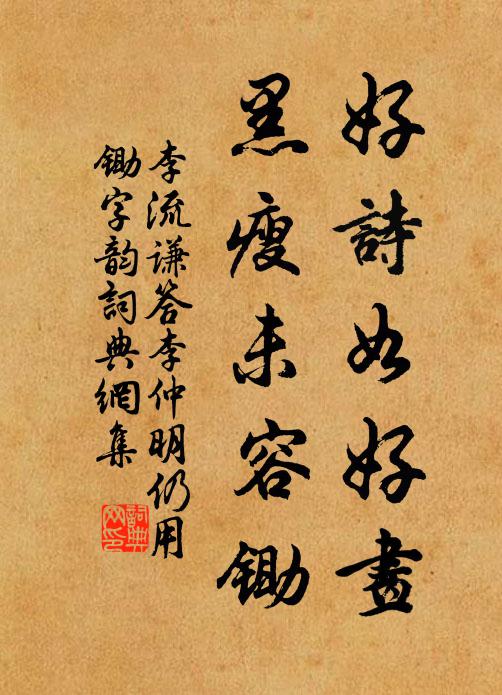 好詩如好畫
黑瘦未容鋤
李流謙答李仲明仍用
鋤字韵詞典網集
詞典
网印